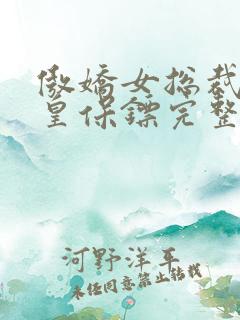 傲嬌女总裁
皇保鏢完整
河野洋平
未经同意禁止转载